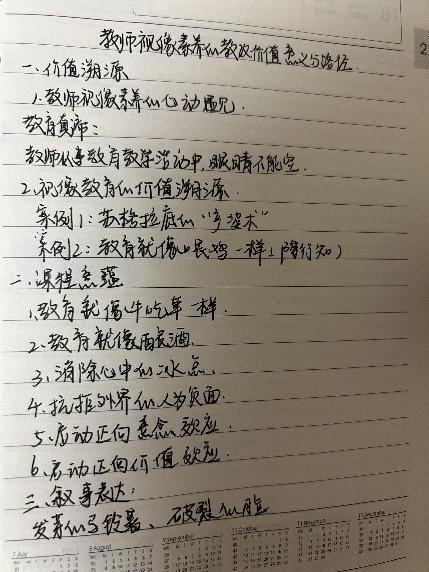 教师视像素养的教育价值意义与路径
一、价值溯源
1.教师视像素养的心动遇见.
教育真谛：
教师从事教育教学活动中,眼睛不能空.
2.视像教育的价值溯源.
案例1：苏格拉底的"产婆术"
案例2：教育就像喂鸡一样（陶行知）
二、课程意蕴
1.教育就像牛吃草一样.
2.教育就像酿酒.
3.消除心中的冰点.
4.抗拒外界的人为负面.
5.启动正向意念效应.
6.启动正向价值效应.
三、叙事表达：
发芽的马铃薯、破裂的
7 July
8 August
9 September
10 October
11 November
2